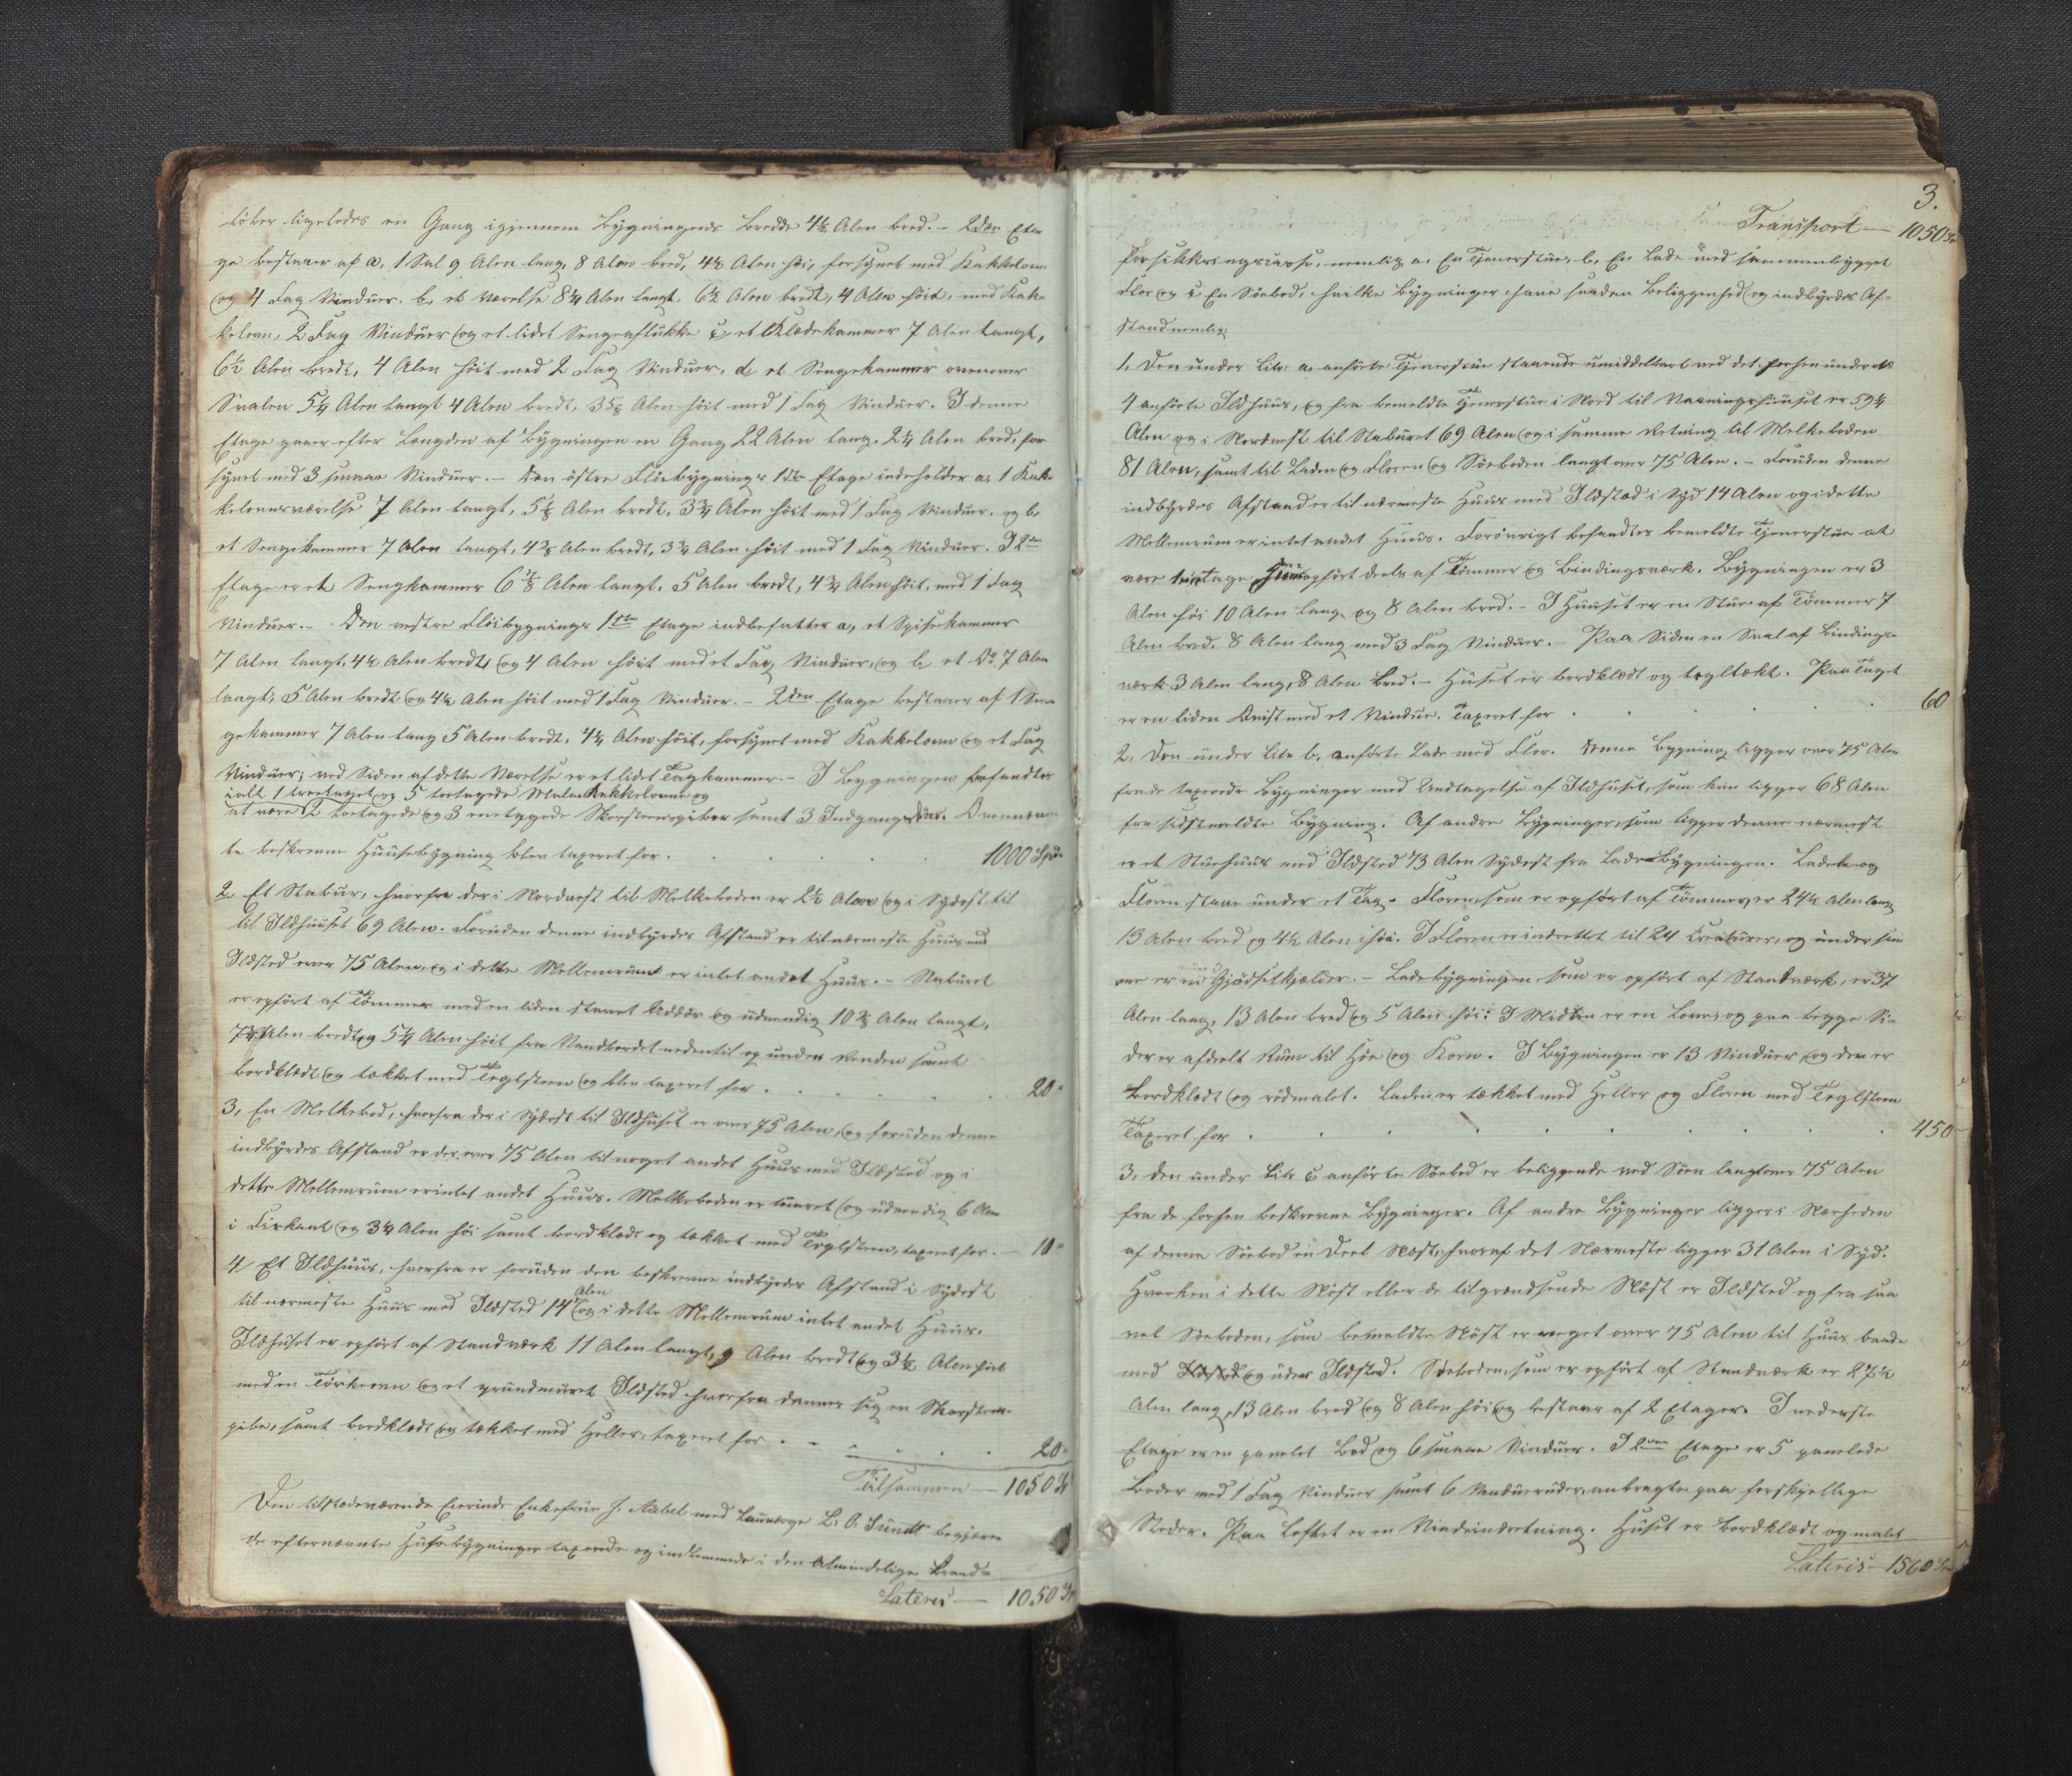 löber ligeledes en Gang igjennem Bygningens Bredde 4½ Alen bred. - 2den Eta-
ge bestaaer af a, 1 Sal 9 Alen lang, 8 Alen bred, 4½ Alen höi, forsynet med Kakkelovn
og 4 Fag Vinduer. b, et Værelse 8¼ Alen langt, 6½ Alen bredt, 4 Alen höit, med Kak-
kelovn, 2 Fag Vinduer og et lidet Sengeaflukke c, et Klædekammer 7 Alen langt,
6½ Alen bredt, 4 Alen höit med 2 Fag Vinduer, d, et Sengekammer ovenover
Svalen 5¼ Alen langt 4 Alen bredt, 3⅝ Alen höit med 1 Fag Vinduer. I denne
Etage gaaer efter Længden af Bygningen en Gang 22 Alen lang, 2¼ Alen bred, for-
synet med 3 smaae Vinduer. - Den östre Flöibygnings 1ste Etage indeholder a, 1 Kak-
kelovnsværelse 7 Alen langt, 5⅛ Alen bredt, 3¾ Alen höit med 1 Fag Vinduer. og b,
et Sengekammer 7 Alen langt, 4⅜ Alen bredt, 3¾ Alen höit med 1 Fag Vinduer. I 2den
Etage er et Sengkammer 6⅞ Alen langt, 5 Alen bredt, 4¾ Alen höit, med 1 Fag
Vinduer. - Den vestre Flöibygnings 1ste Etage indbefatter a, et Spisekammer
7 Alen langt, 4½ Alen bredt, og 4 Alen höit med et Fag Vinduer, og b, et Do 7 Alen
langt, 5 Alen bredt og 4½ Alen höit med 1 Fag Vinduer. - 2den Etage bestaaer af 1 Sen-
gekammer 7 Alen lang 5 Alen bredt, 4¼ Alen höit, forsynet med Kakkelovn og et Fag
Vinduer; ved Siden af dette Værelse er et lidet Tagkammer. - I Bygningen befandtes
ialt 1 treetaget og 5 toetagede Kakkelovne og
at være 2 toetagede og 3 eenetagede Skorsteenspiber samt 3 Indgangsdöre. Ovennævn-
te beskrevne Huusebygning blev taxeret for . . . . . 1000 Spd
2 Et Stabur, hvorfra der i Nordvest til Melkeboden er 2½ Alen og i Sydost til
til Ildhuuset 69 Alen. Foruden denne indbyrdes Afstand er til nærmeste Huus med
Ildsted over 75 Alen, og i dette Mellemrum er intet andet Huus. - Staburet
er opfört af Tömmer med en liden udvendig 10⅜ Alen langt,
7¾ Alen bredt og 5¼ Alen höit fra Vandbordet nedentil og under Renden samt
bordklædt og tækket med Teglsteen og blev taxeret for . . . . . 20 "
3, En Melkebod, hvorfra der i Sydost til Ildhuset er over 75 Alen, og foruden denne
indbyrdes Afstand er der over 75 Alen til noget andet Huus med Ildsted og i
dette Mellemrum er intet andet Huus. Melkeboden er muret og udvendig 6 Alen
i Firkant og 3¼ Alen höi samt bordklædt og tækket med Teglsteen, taxeret for. - 10 "
4, Et Ildhuus, hvorfra er foruden den beskrevne indbyrdes Afstand i Sydost
til nærmeste Huus med Ildsted 14 Alen og i dette Mellemrum intet andet Huus.
Ildhuset er opfört af Standværk 11 Alen langt, 9 Alen bredt og 3½ Alen höit
med en Törkeovn og et grundmuret Ildsted hvorfra danner sig en Skorsteens-
pibe, samt bordklædt og tækket med Heller, taxeret for . . . . . 20 "
Tilsammen - 1050 Spd
Den tilstædeværende Eierinde Enkefrue J. Aabel med Laugværge L. O. Sundt begjærer
de efternævnte Husebygninger taxerede og indlemmede i den Almindelige Brand-
Lateris - 1050 Sp
3.
Transport - 1050 Sp
forsikkringscasse, nemlig a, En Tjenerstue, b, En Lade med sammenbygget
Flor og c, En Söebod, hvilke Bygninger have saadan Beliggenhed og indbyrdes Af-
stand nemlig:
1, Den under Litr. a, anförte Tjenerstue staaende umiddelbart ved det forhen under No
4 anförte Ildhuus, og fra bemeldte Tjenerstue i Nord til Vaaningshuuset er 59¼
Alen og i Nordvest til Staburet 69 Alen og i samme Retning til Melkeboden
81 Alen, samt til Laden og Floren og Söeboden langt over 75 Alen. - Foruden denne
indbyrdes Afstand er til nærmeste Huus med Ildsted i Syd 14 Alen og i dette
Mellemrum er intet andet Huus. Forövrigt befandtes bemeldte Tjenerstue at
være 1 Etage opfört deels af Tömmer og Bindingsværk. Bygningen er 3
Alen höi 10 Alen lang og 8 Alen bred. - I Huuset er en Stue af Tömmer 7
Alen bred, 8 Alen lang med 3 Fag Vinduer. - Paa Siden en Sval af Bindings-
værk 3 Alen lang, 8 Alen bred. - Huset er bordklædt og tegltækt. Paa Taget
er en liden Qvist med et Vindue. Taxeret for . . . . . 60
2, Den under Litr. b, anförte Lade med Flor. Denne Bygning ligger over 75 Alen
fra de taxerede Bygninger med Undtagelse af Ildhuset, som kun ligger 68 Alen
fra sidstmeldte Bygning. Af andre Bygninger, som ligger denne nærmest
er et Stuehuus med Ildsted 73 Alen Sydost fra Ladebygningen. Laden og
Floren staae under et Tag. Floren, som er opfört af Tömmer, er 24½ Alen lang
13 Alen bred og 4½ Alen höi. I Floren er indrettet til 24 Creaturer, og under sam-
me er en Gjödselkjælder. - Ladebygningen, som er opfört af Standværk, er 37
Alen lang, 13 Alen bred og 5 Alen höi. I Midten er en Love, og paa begge Si-
der er afdeelt Rum til Höe og Korn. I Bygningen er 13 Vinduer, og den er
bordklædt og rödmalet. Laden er tækket med Heller og Floren med Teglsteen
Taxeret for . . . . . 450 -
3, Den under Litr. c anförte Söebod er beliggende ved Söen langt over 75 Alen
fra de forhen beskrevne Bygninger. Af andre Bygninger ligger i Nærheden
af denne Söebod en Deel Nöst, hvoraf det Nærmeste ligger 31 Alen i Syd.
Hverken i dette Nöst eller de tilgrændsende Nöst er Ildsted og fra saa-
vel Söeboden, som bemeldte Nöst er meget over 75 Alen til Huus baade
med Ildsted og uden Ildsted. Söeboden, som er opfört af Standværk er 27½
Alen lang, 13 Alen bred og 8 Alen höi og bestaaer af 2 Etager. I nederste
Etage er en panelet Bod og 6 smaae Vinduer. I 2den Etage er 5 panelede
Boder med 1 Fag Vinduer samt 6 Vinduesruder, anbragte paa forskjellige
Steder. Paa Loftet er en Vindeindretning. Huset er bordklædt og malet
Lateris - 1560 Sp